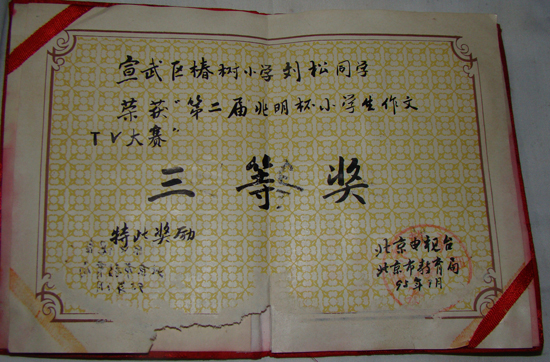 宣武区椿树小学刘松同学
荣获"第二届兆明杯小学生作文
TV大赛"
三等奖
特此奖励
北京电视台
北京市教育局